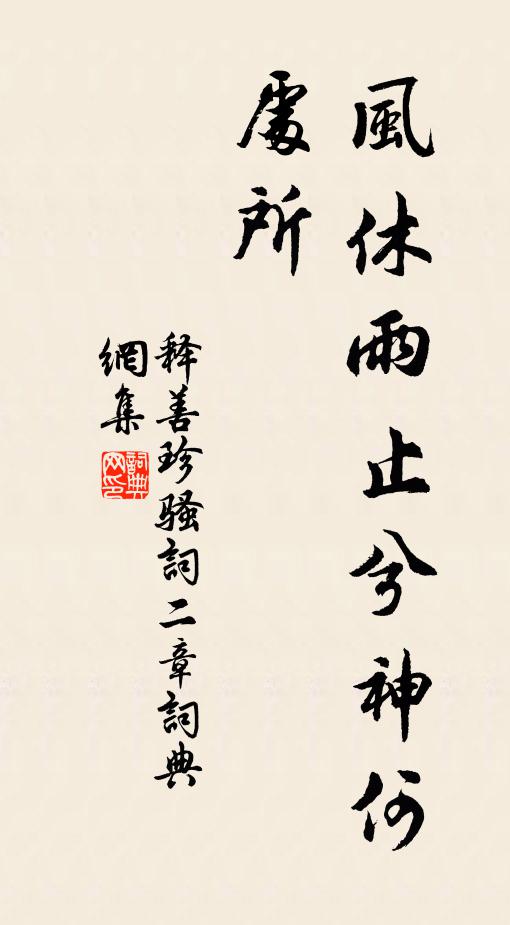 風休雨止兮神何
處所
释善珍骚詞二章詞典
網集
詞典网印